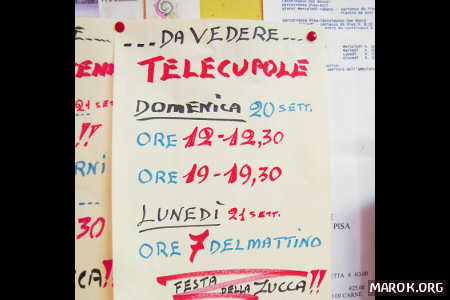 ...DA VEDERE...
TELECUPOLE
DOMENICA 20 SETT.
ORE 12-12,30
ORE 19-19,30
LUNEDÌ 21 SETT.
ORE 7 DEL MATTINO
FESTA DELLA ZUCCA!!
21 SETT
!!
RNI
30
CA!
PISA
MAROK.ORG